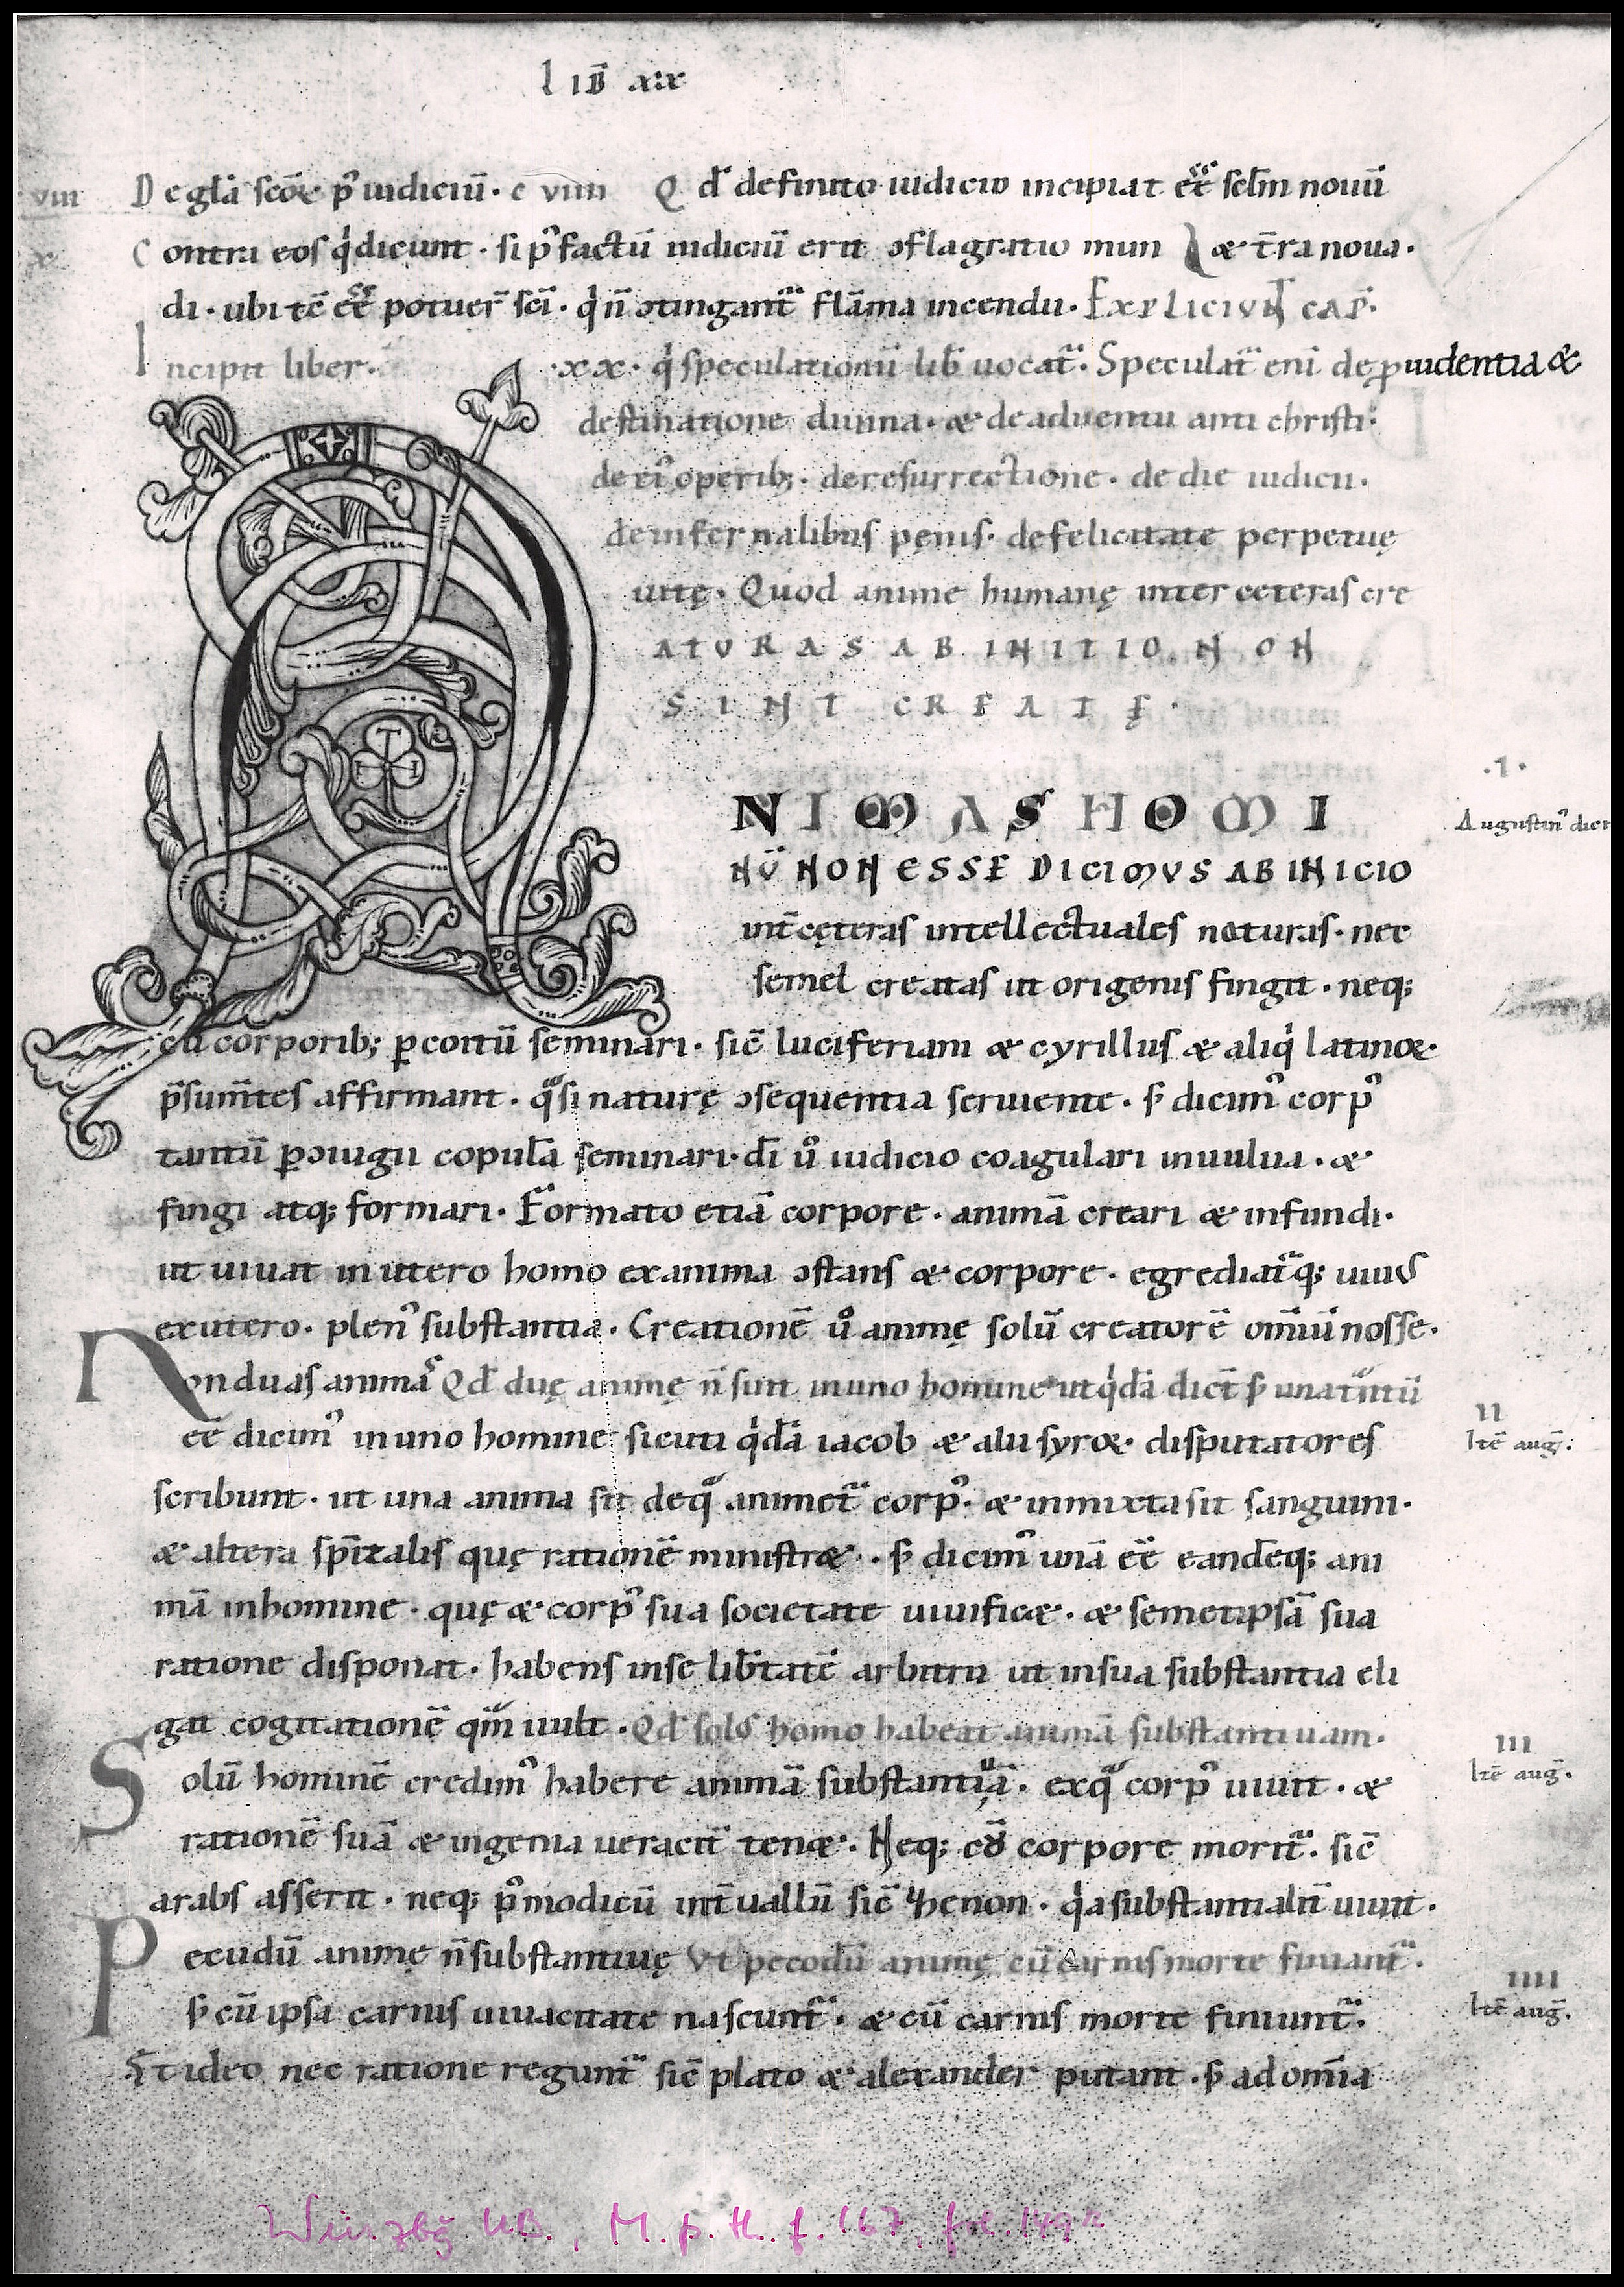 lIB̄ xx
viii D e gl̄a sc̄oꝝ p᷒ iudiciū· c viiii Q d̄ definito iudicio incipiat eē̄ sc̄lm nouū
x C ontra eos q̇ dicunt · si p᷒ factū iudiciū erit ↄflagratio mun & t̄ra noua·
di · ubi tc̄ eē̄ potuer̄ sc̄i · q̇ n̄ ↄtingant᷑ flāma incendii· EXPLICIVNT CAP̄·
I ncipit liber· ·xx· q̇ speculationū lib̄ uocat᷑· Speculat᷑ eni de ꝓuidentia &
destinatione diuina · & de aduentu anti christi·
de ei᷒ operib;· de resurrectione · de die iudicii ·
de infernalibus pęnis· de felicitate perpetuę
uitę· Quod anime humanę inter ceteras cre
ATVRAS AB INITIO NON
SINT CREATĘ·
·I·
NIMAS HOMI
Augustin᷒ dicit
NV̄ NON ESSE DICIMVS AB INICIO
int̄ cęteras intellectuales naturas· nec
semel creatas ut origenis fingit · neq;
cū corporib; ꝑ coitū seminari· sic̄ luciferiani & cyrillus & aliq̇ latinoꝝ
p̄sum̄tes affirmant · q̄si naturę ↄsequentia seruiente · s; dicim᷒ corp᷒
tantū ꝑ ↄiugii copulā seminari· d̄i u᷒o iudicio coagulari in uulua · &
fingi atq; formari · Formato etiā corpore · animā creari & infundi·
ut uiuat in utero homo ex anima ↄstans & corpore · egrediat᷑q; uiuus
ex utero · plen᷒ substantia · Creationē u᷒o animę solū creatorē omīu nosse·
Non duas animas Qd̄ duę animę n̄ sunt in uno homine ut q̇dā dict̄ s; una tm̄tū
II
ee dicim᷒ in uno homine sicuti q̇dā iacob & alii syroꝝ disputatores
Itē aug̃·
scribunt · ut una anima sit de q̄ animet᷑ corp᷒· & inmixta sit sanguini·
& altera sp̄italis quę rationē ministr& · s; dicim᷒ unā eē eandēq; ani
mā in homine · quę & corp᷒ sua societate uiuific& · & semetipsā sua
ratione disponat · habens in se lib̄tatē arbitrii ut in sua substantia eli
gat cogitationē qm̄ uult · Qd̄ solus homo habeat animā substantiuam·
III
S olū hominē credim᷒ habere animā substantiuā· exq̄ corp᷒ uiuit · &
Itē aug̃·
rationē suā & ingenia ueracit᷑ ten& · Neq; cū corpore morit᷑· sic̄
arabs asserit · neq; p᷒ modicū int̄uallū sic̄ zhenon · q̇a substantialit᷑ uiuit ·
P ecudū animę n̄ substantiuę Vt pecodū animę cū carnis morte finiant᷑·
IIII
s; cū ipsa carnis uiuacitate nascunt᷑ · & cū carnis morte finiunt᷑·
Itē aug̃·
Et ideo nec ratione regunt᷑ sic̄ plato & alexander putant · s; ad om̄ia
Würzbg UB., M. p. th. f. 167, fol. 149r